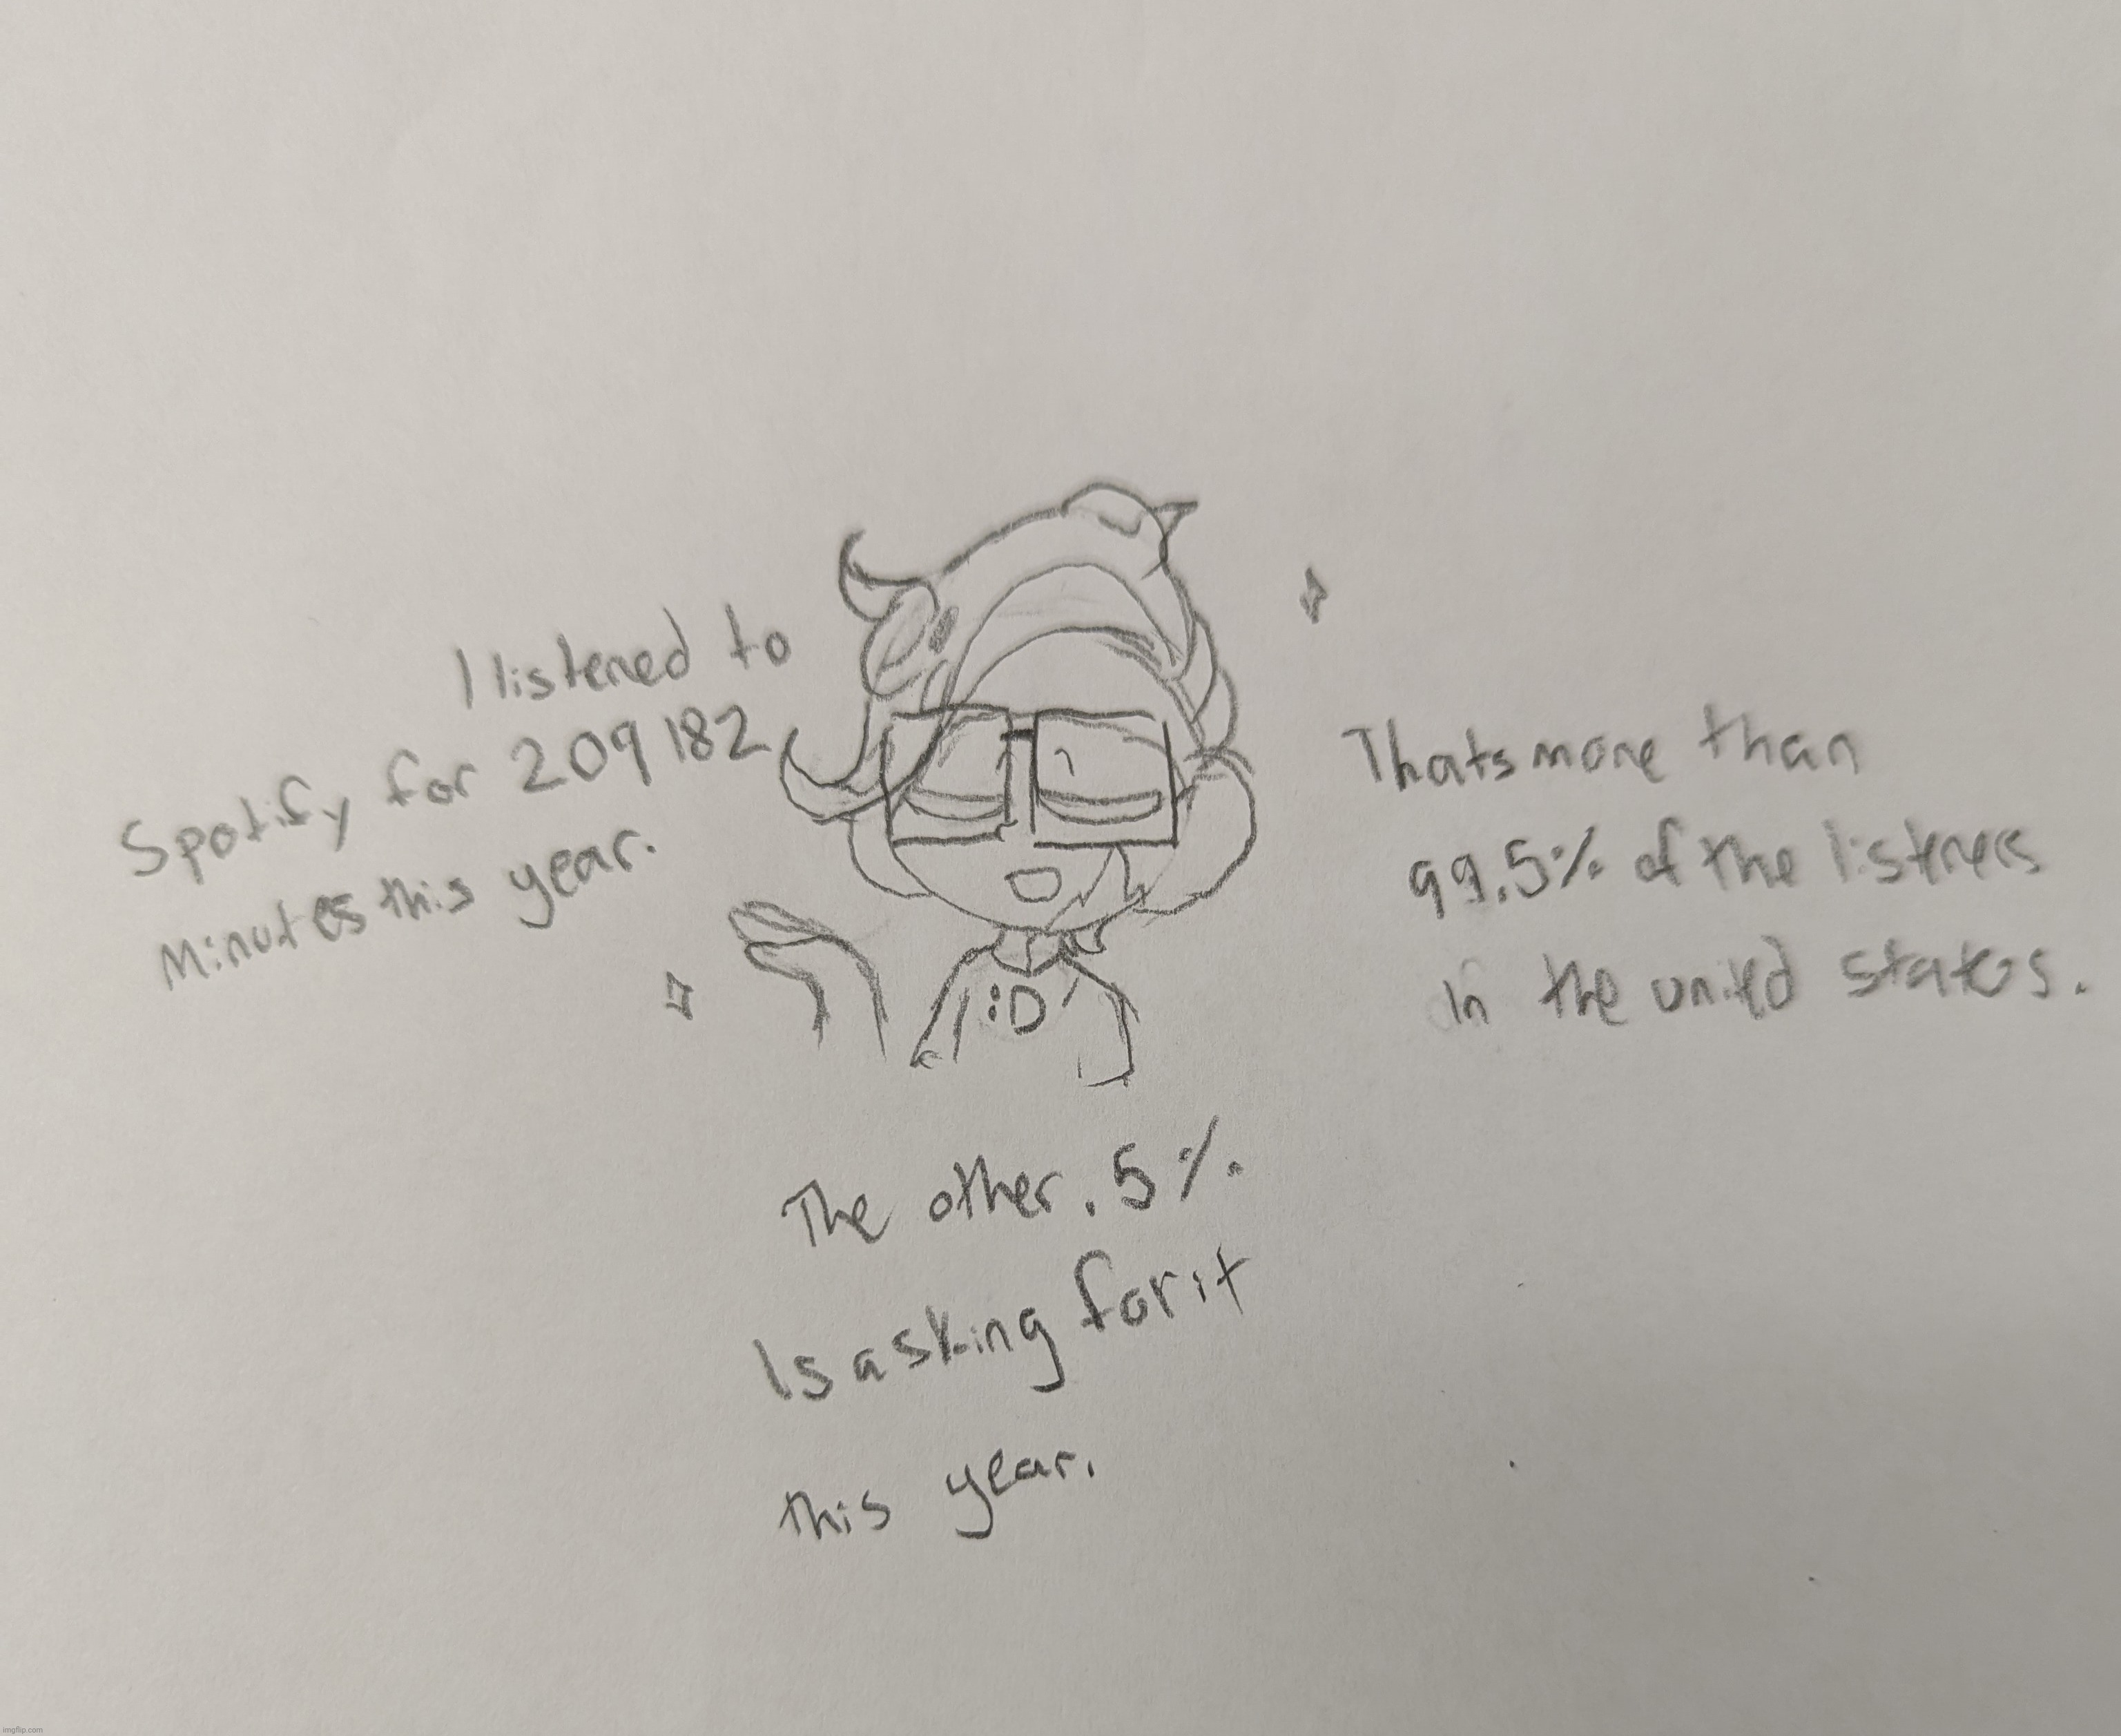 I listened to
Spotify for 209182
minutes this year.
Thats more than
99.5% of the listeners
in the united states.
:D
The other .5%
Is asking for it
this year.
imgflip.com